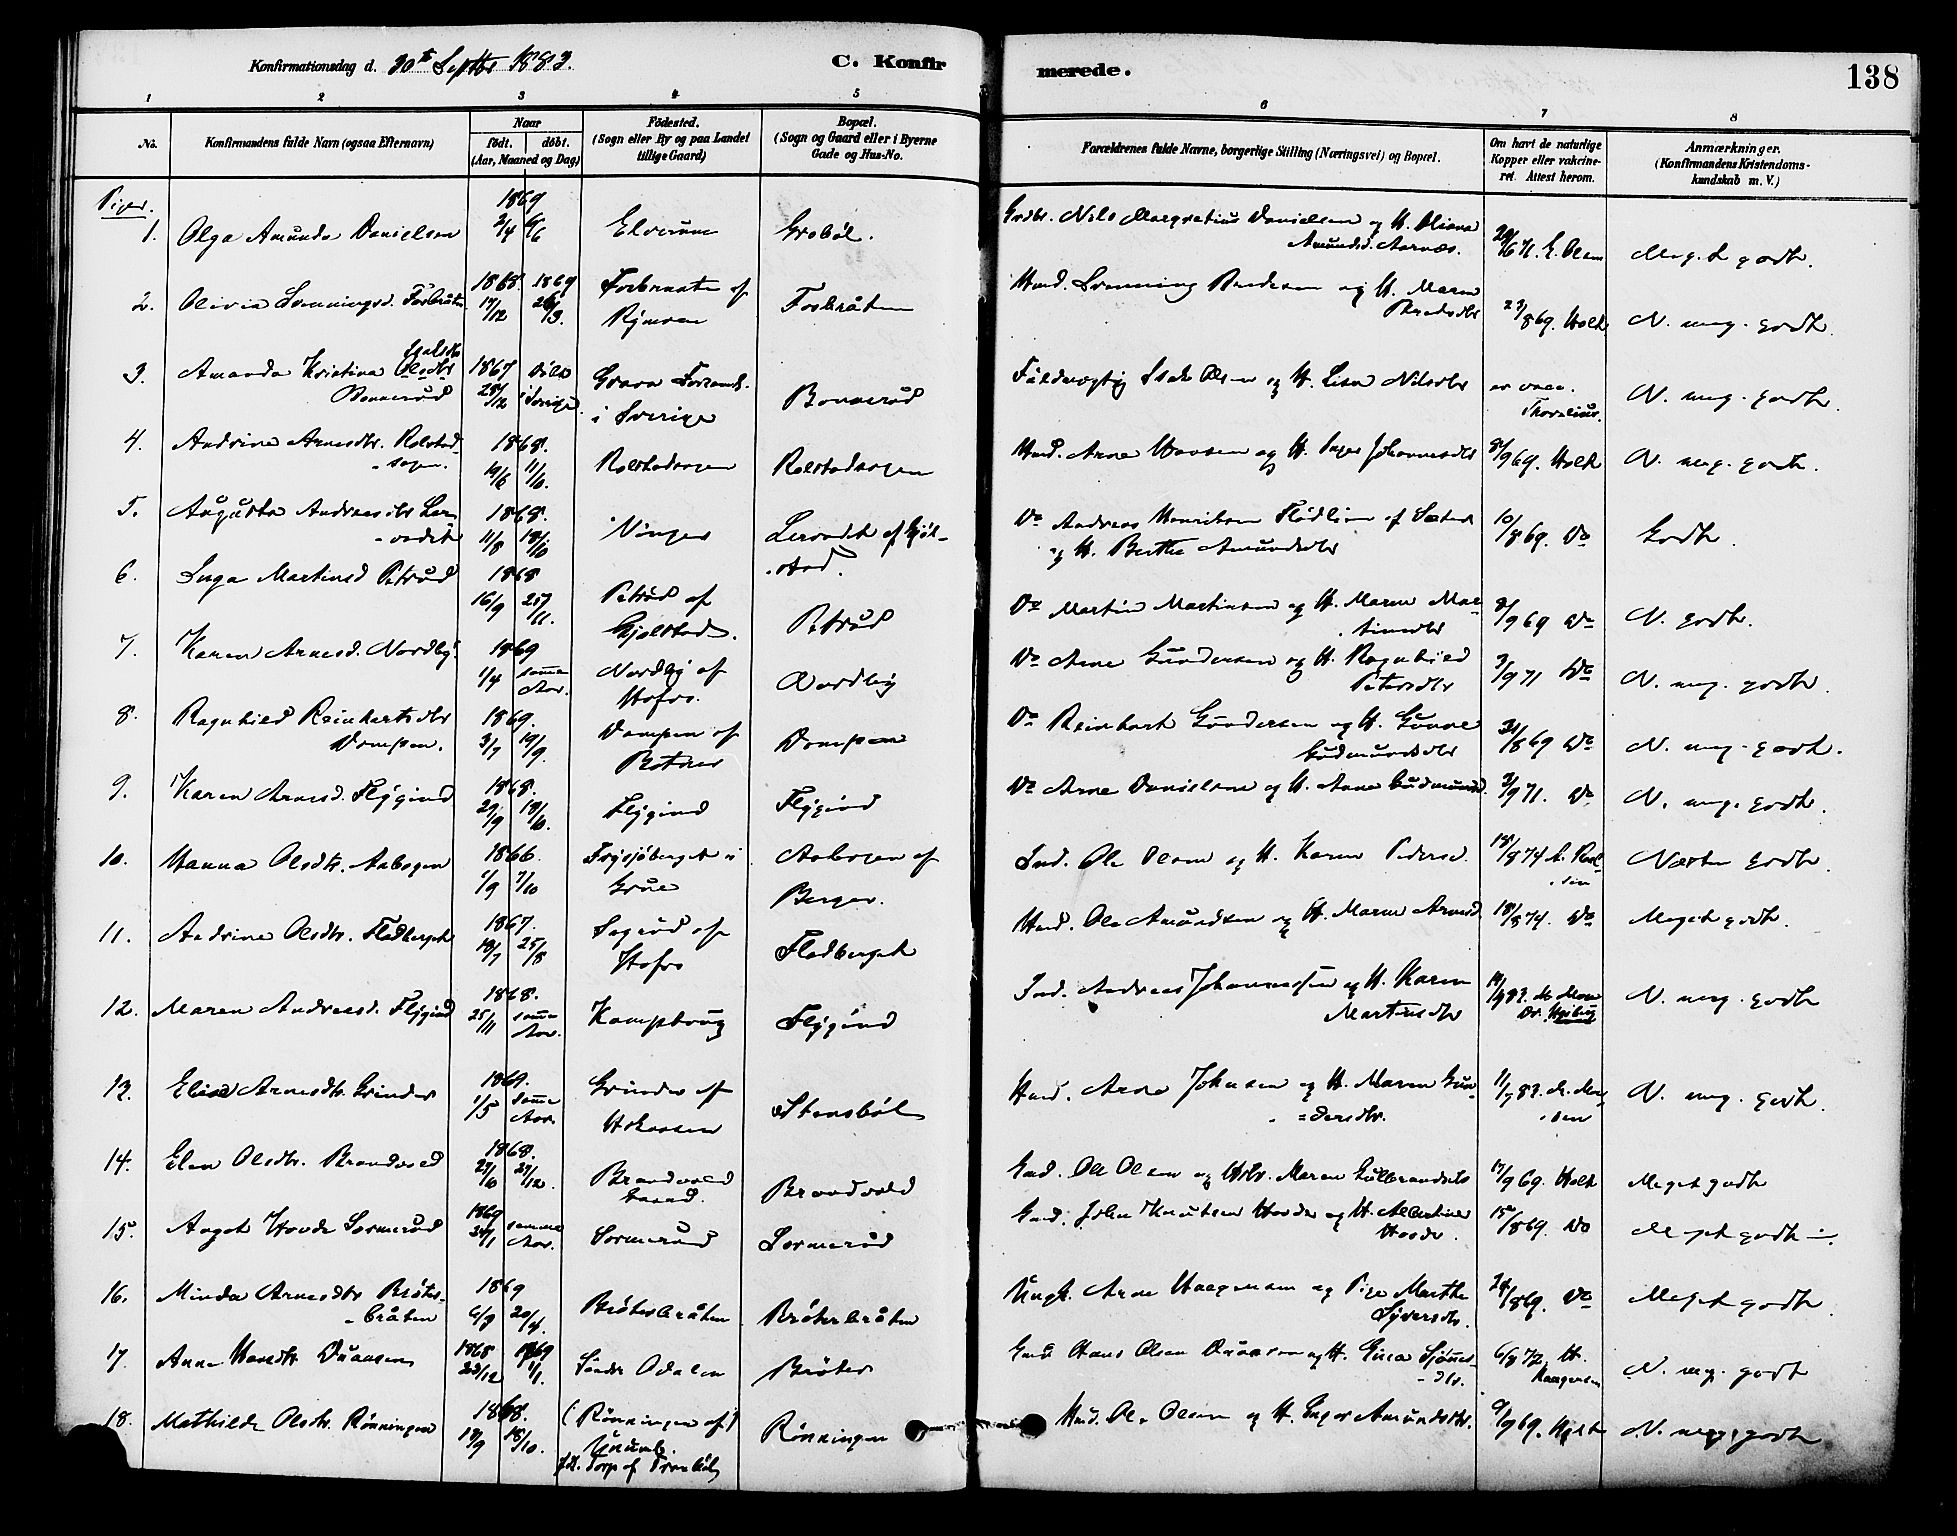 Konfirmationsdag d. 30te Septbr 1883. C. Konfirmerede. 138
1 2 3 4 5 6 7 8
No. Konfirmandens fulde Navn (ogsaa Efternavn) Naar født. døbt. (Aar, Maaned og Dag) Fødested. (Sogn eller By og paa Landet tillige Gaard) Bopæl. (Sogn og Gaard eller i Byerne Gade og Hus-No. Forældrenes fulde Navne, borgerlige Stilling (Næringsvei) og Bopæl. Om havt de naturlige Kopper eller vakcineret. Attest herom. Anmærkninger. (Konfirmandens Kristendomskundskab m. V.)
Piger. 1869
1. Olga Amunda Danielsen 2/4 6/6 Elverum Grøbøl. Nils Margretius Danielsen og H. Oliana Amundsd. Aarnæs. 71. E. Olsen Meget godt.
2. Olivia Svenningsd. Forbråten 1868 17/12 1869 26/3. Forbraaten af Rymoen Forbråten Husmd. Svenning Bredesen og H. Maren Bredesdtr 23/8 69. Holt N. meg. godt.
3. Amanda Kristina Olsdtr Bonnerud 1867 28/12 døbt i Sverige Grava Forsaml. i Sverige Bonnerud Isak Olsen og H. Lisa Nilsdtr er vacc. Thorelius. N. meg. godt.
4. Andrine Arnesdtr. Rolstadsagen. 1868. 19/6 11/10. Rolstadsagen Rolstadsagen Husmd. Arne Hansen og H. Inger Johannesdtr 8/9 69. Holt N. meg. godt.
5. Augusta Andreasdtr 1868. 11/8 18/10 Vinger Do Andreas Henriksen Flødlien af Sæter og H. Berthe Amundsdtr 10/8 69. Do Godt.
6. Inga Martinsd Petrud 1868 16/9 25/11. Petrud af Gjølstad. Petrud Do Martin Martinsen og H. Maren Martinsdtr 8/9 69 Do N. godt.
7. Karen Arnesd. Nordby. 1869 1/4 samme Aar. Nordby af Hofos. Nordby Do Arne Gundersen og H. Ragnhild Petersdtr 3/9 71 Do N. meg. godt.
8. Ragnhild Reinhartsdtr Dompen. 1869. 3/7 19/9. Dompen af Rotnes Dompen Do Reinhart Gundersen og H. Gunne Gudmundsdtr 31/8 69 Do N. meg. godt.
9. Karen Arnesd. Flygind 1868. 29/9 18/10. Flygind Flygind Do Arne Danielsen og H. Anne Gudmundsd. 3/9 71. Do. N. meg. godt.
10. Hanna Olsdtr. Aabogen 1866. 1/9 7/10 Frysjøberget i Grue Aabogen af Berger. Ind. Ole Olsen og H. Karen Pedersd. 18/8 74 Næsten godt.
11. Andrine Olsdtr. Fladberget 1867. 19/7 25/8 Sagerud af Hofos Fladberget Husmd. Ole Amundsen og H. Maren Arnesd. 18/8 74. Do Meget godt.
12. Maren Andreasd. Flygind 1868. 25/11 samme Aar. Kampehaug Flygind Ind. Andreas Johannessen og H. Karen Martinsdtr 83. N. meg. godt
13. Elise Arnesdtr. Grinder 1869. 1/5 samme Aar. Grinder af Stensbøl Husmd. Arne Johnsen og H. Maren Gundersdtr. 83. N. meg. godt.
14. Elen Olsdtr. Brandvold 1868. 29/6 27/12. Brandvold Gaard. Brandvold Gmd. Ole Olsen og Hstr. Maren Gulbrandsdtr 17/9 69. Holt Meget godt
15. Aagot Hovde Sormerud 1869 24/1 samme Aar. Sormerud Sormerud Gmd. John Knutsen Hovde og H. Albertine Hovde. 15/8 69. Do Meget godt.
16. Minda Arnesdtr Brøterbråten 1869 6/3 20/4. Brøterbråten Brøterbråten Ungk. Arne Haagensen og Pige Marthe Syversdtr. 24/8 69. Do Meget godt.
17. Anne Hansdtr Duaasen 1868 23/12 1869 1/1. Søndre Odalen Brøter Gmd Hans Olsen Duaasen og H. Gina 6/8 72. H. Haagensen N. meg. godt
18. Mathilde Olsdtr. Rønningen 1868. 13/9 18/10. (Rønningen af) Torp af Rønningen Husmd. Ole Olsen og H. Inger Amundsdtr. 9/9 69. Holt N. meget godt